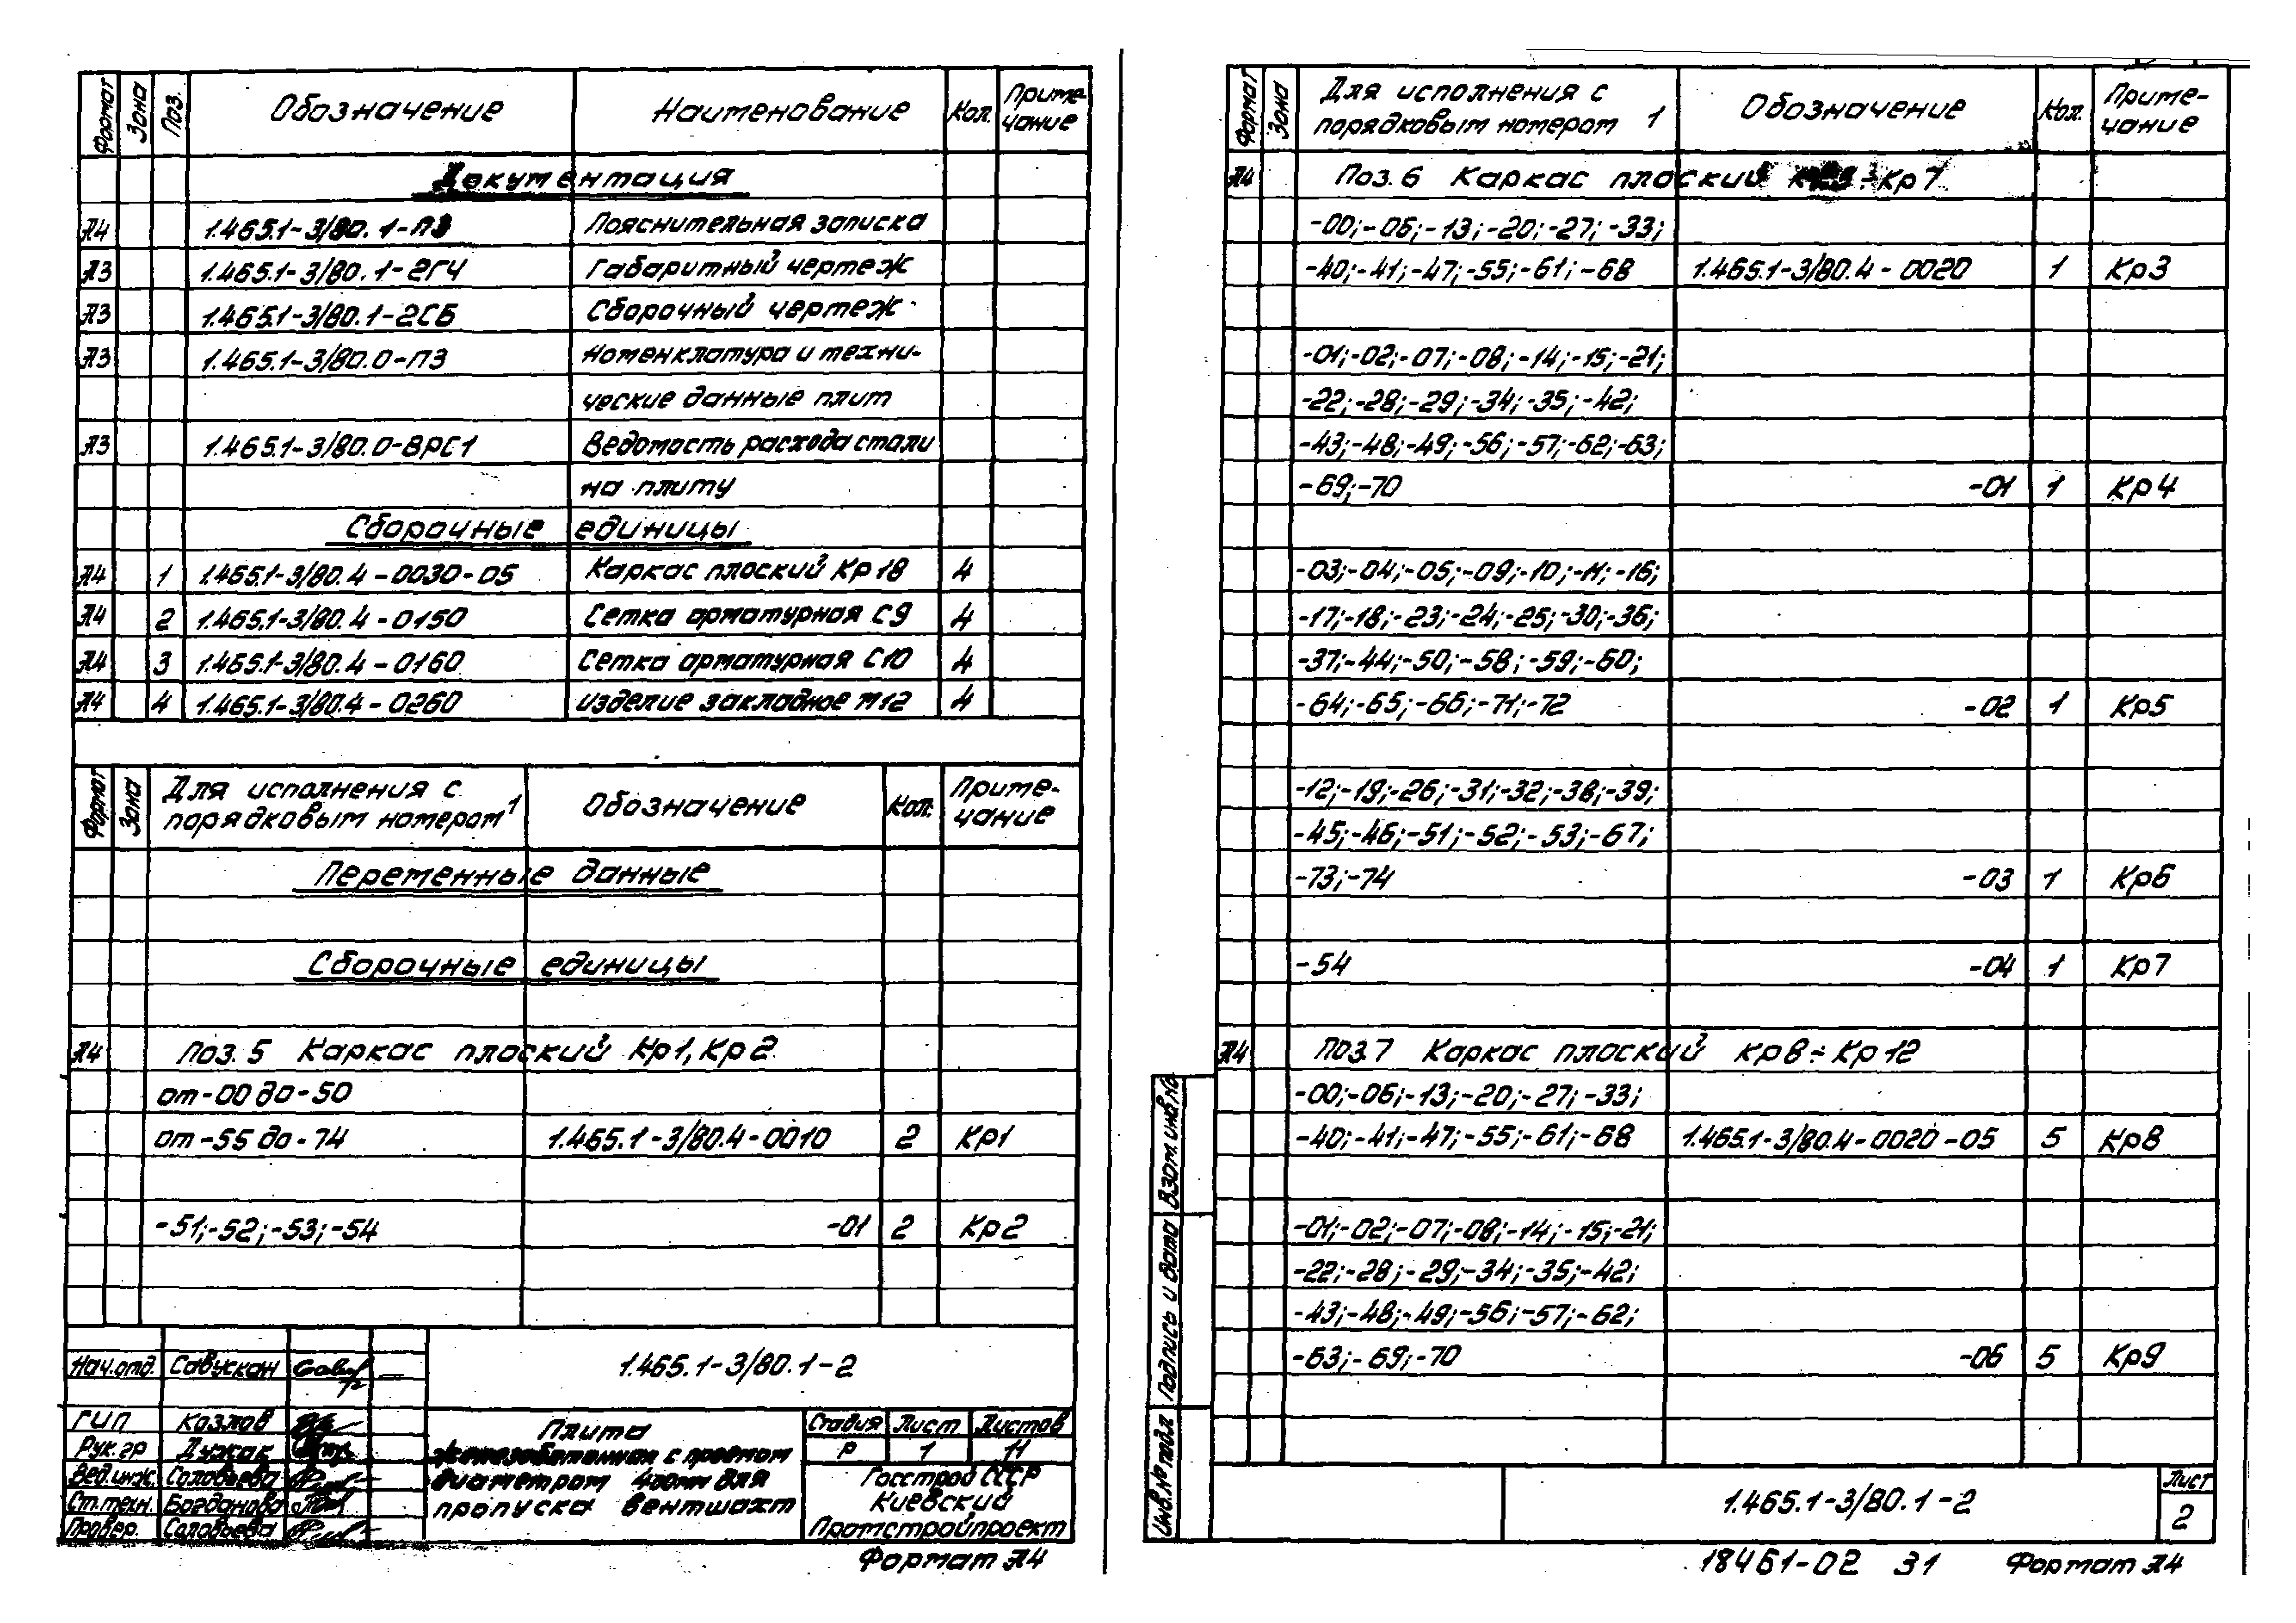 Формат Зона Поз. Обозначение Наименование Кол. Приме-
чание
Документация
А4 1.465.1-3/80.1-ПЗ Пояснительная записка
А3 1.465.1-3/80.1-2ГЧ Габаритный чертеж
А3 1.465.1-3/80.1-2СБ Сборочный чертеж
А3 1.465.1-3/80.0-ПЗ Номенклатура и техни-
ческие данные плит
А3 1.465.1-3/80.0-ВРС1 Ведомость расхода стали
на плиту
Сборочные единицы
А4 1 1.465.1-3/80.4-0030-05 Каркас плоский Кр18 4
А4 2 1.465.1-3/80.4-0150 Сетка арматурная С9 4
А4 3 1.465.1-3/80.4-0160 Сетка арматурная С10 4
А4 4 1.465.1-3/80.4-0260 Изделие закладное М12 4
Формат Зона Для исполнения с Обозначение Кол. Приме-
порядковым номером 1 чание
Переменные данные
Сборочные единицы
А4 Поз. 5 Каркас плоский Кр1, Кр2
от-00 до-50
от-55 до-74 1.465.1-3/80.4-0010 2 Кр1
-51;-52;-53;-54 -01 2 Кр2
Нач.отд. Савускан
1.465.1-3/80.1-2
ГИП Козлов
Рук.гр Дужак
Вед.инж. Соловьева
Ст.техн. Богданова
Провер. Соловьева
Плита
железобетонная с проемом
диаметром 400мм для
пропуска вентшахт
Стадия Лист Листов
Р 1 11
Госстрой СССР
Киевский
Промстройпроект
Формат А4
Формат Зона Для исполнения с Обозначение Кол. Приме-
порядковым номером 1 чание
А4 Поз. 6 Каркас плоский ÷Кр7
-00;-06;-13;-20;-27;-33;
-40;-41;-47;-55;-61;-68 1.465.1-3/80.4-0020 1 Кр3
-01;-02;-07;-08;-14;-15;-21;
-22;-28;-29;-34;-35;-42;
-43;-48;-49;-56;-57;-62;-63;
-69;-70 -01 1 Кр4
-03;-04;-05;-09;-10;-11;-16;
-17;-18;-23;-24;-25;-30;-36;
-37;-44;-50;-58;-59;-60;
-64;-65;-66;-71;-72 -02 1 Кр5
-12;-19;-26;-31;-32;-38;-39;
-45;-46;-51;-52;-53;-67;
-73;-74 -03 1 Кр6
-54 -04 1 Кр7
А4 Поз.7 Каркас плоский Кр8÷Кр12
-00;-06;-13;-20;-27;-33;
-40;-41;-47;-55;-61;-68 1.465.1-3/80.4-0020-05 5 Кр8
-01;-02;-07;-08;-14;-15;-21;
-22;-28;-29;-34;-35;-42;
-43;-48;-49;-56;-57;-62;
-63;-69;-70 -06 5 Кр9
Взам.инв.№
Подпись и дата
Инв.№ подл
1.465.1-3/80.1-2
Лист
2
18461-02 31 Формат А4